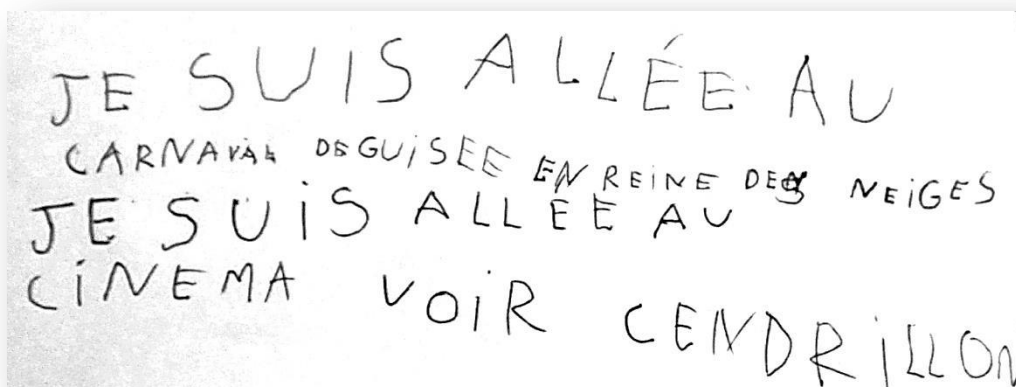 JE SUIS ALLÉE AU
CARNAVAL DEGUiSEE EN REiNE DES NEiGES
JE SUiS ALLEE AU
CiNEMA VOiR CENDRiLLON